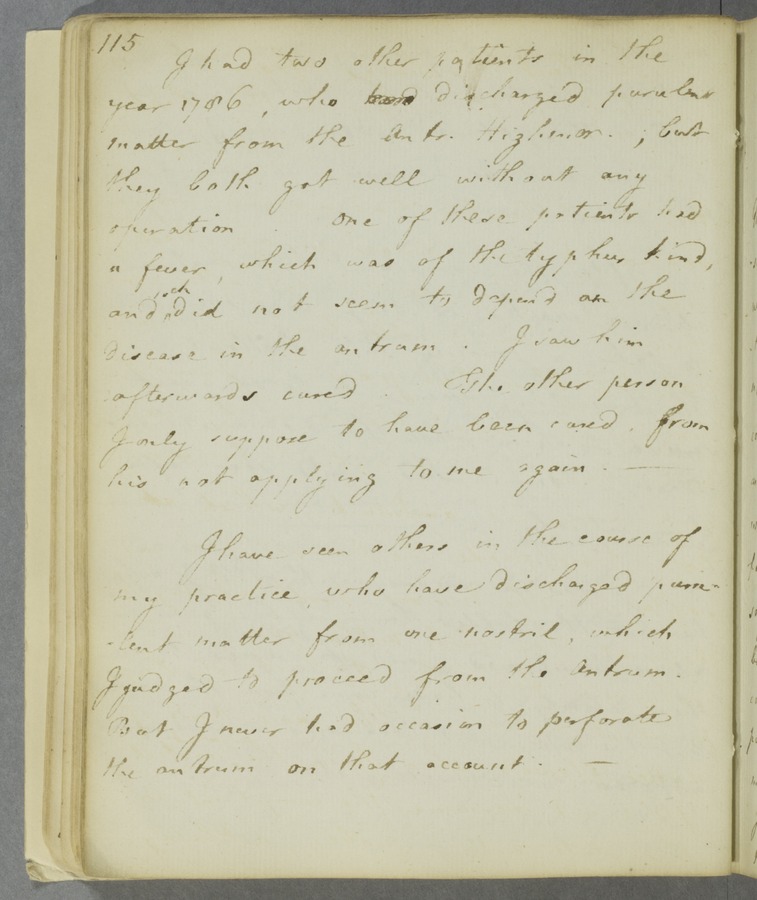 115
I had two other patients in the
year 1786, who discharged purulent
matter from the Antr. Highmor. ; but
they both got well without any
operation. One of these patients had
a fever, which was of the typhus kind,
and wch did not seem to depend on the
disease in the antrum. I saw him
afterwards cured. The other person
I only suppose to have been cured, from
his not applying to me again. —
I have seen others in the course of
my practice, who have discharged puru-
-lent matter from one nostril, which
I judged to proceed from the Antrum.
But I never had occasion to perforate
the antrum on that account. —